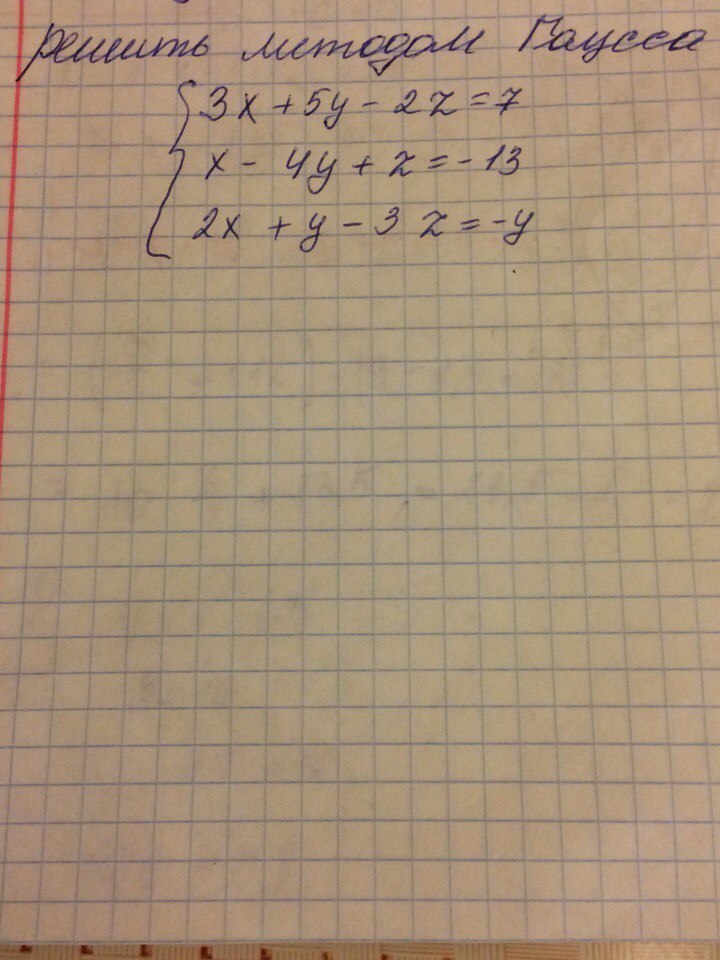 решить методом Гаусса
3x + 5y - 2z = 7
x - 4y + z = -13
2x + y - 3z = -y